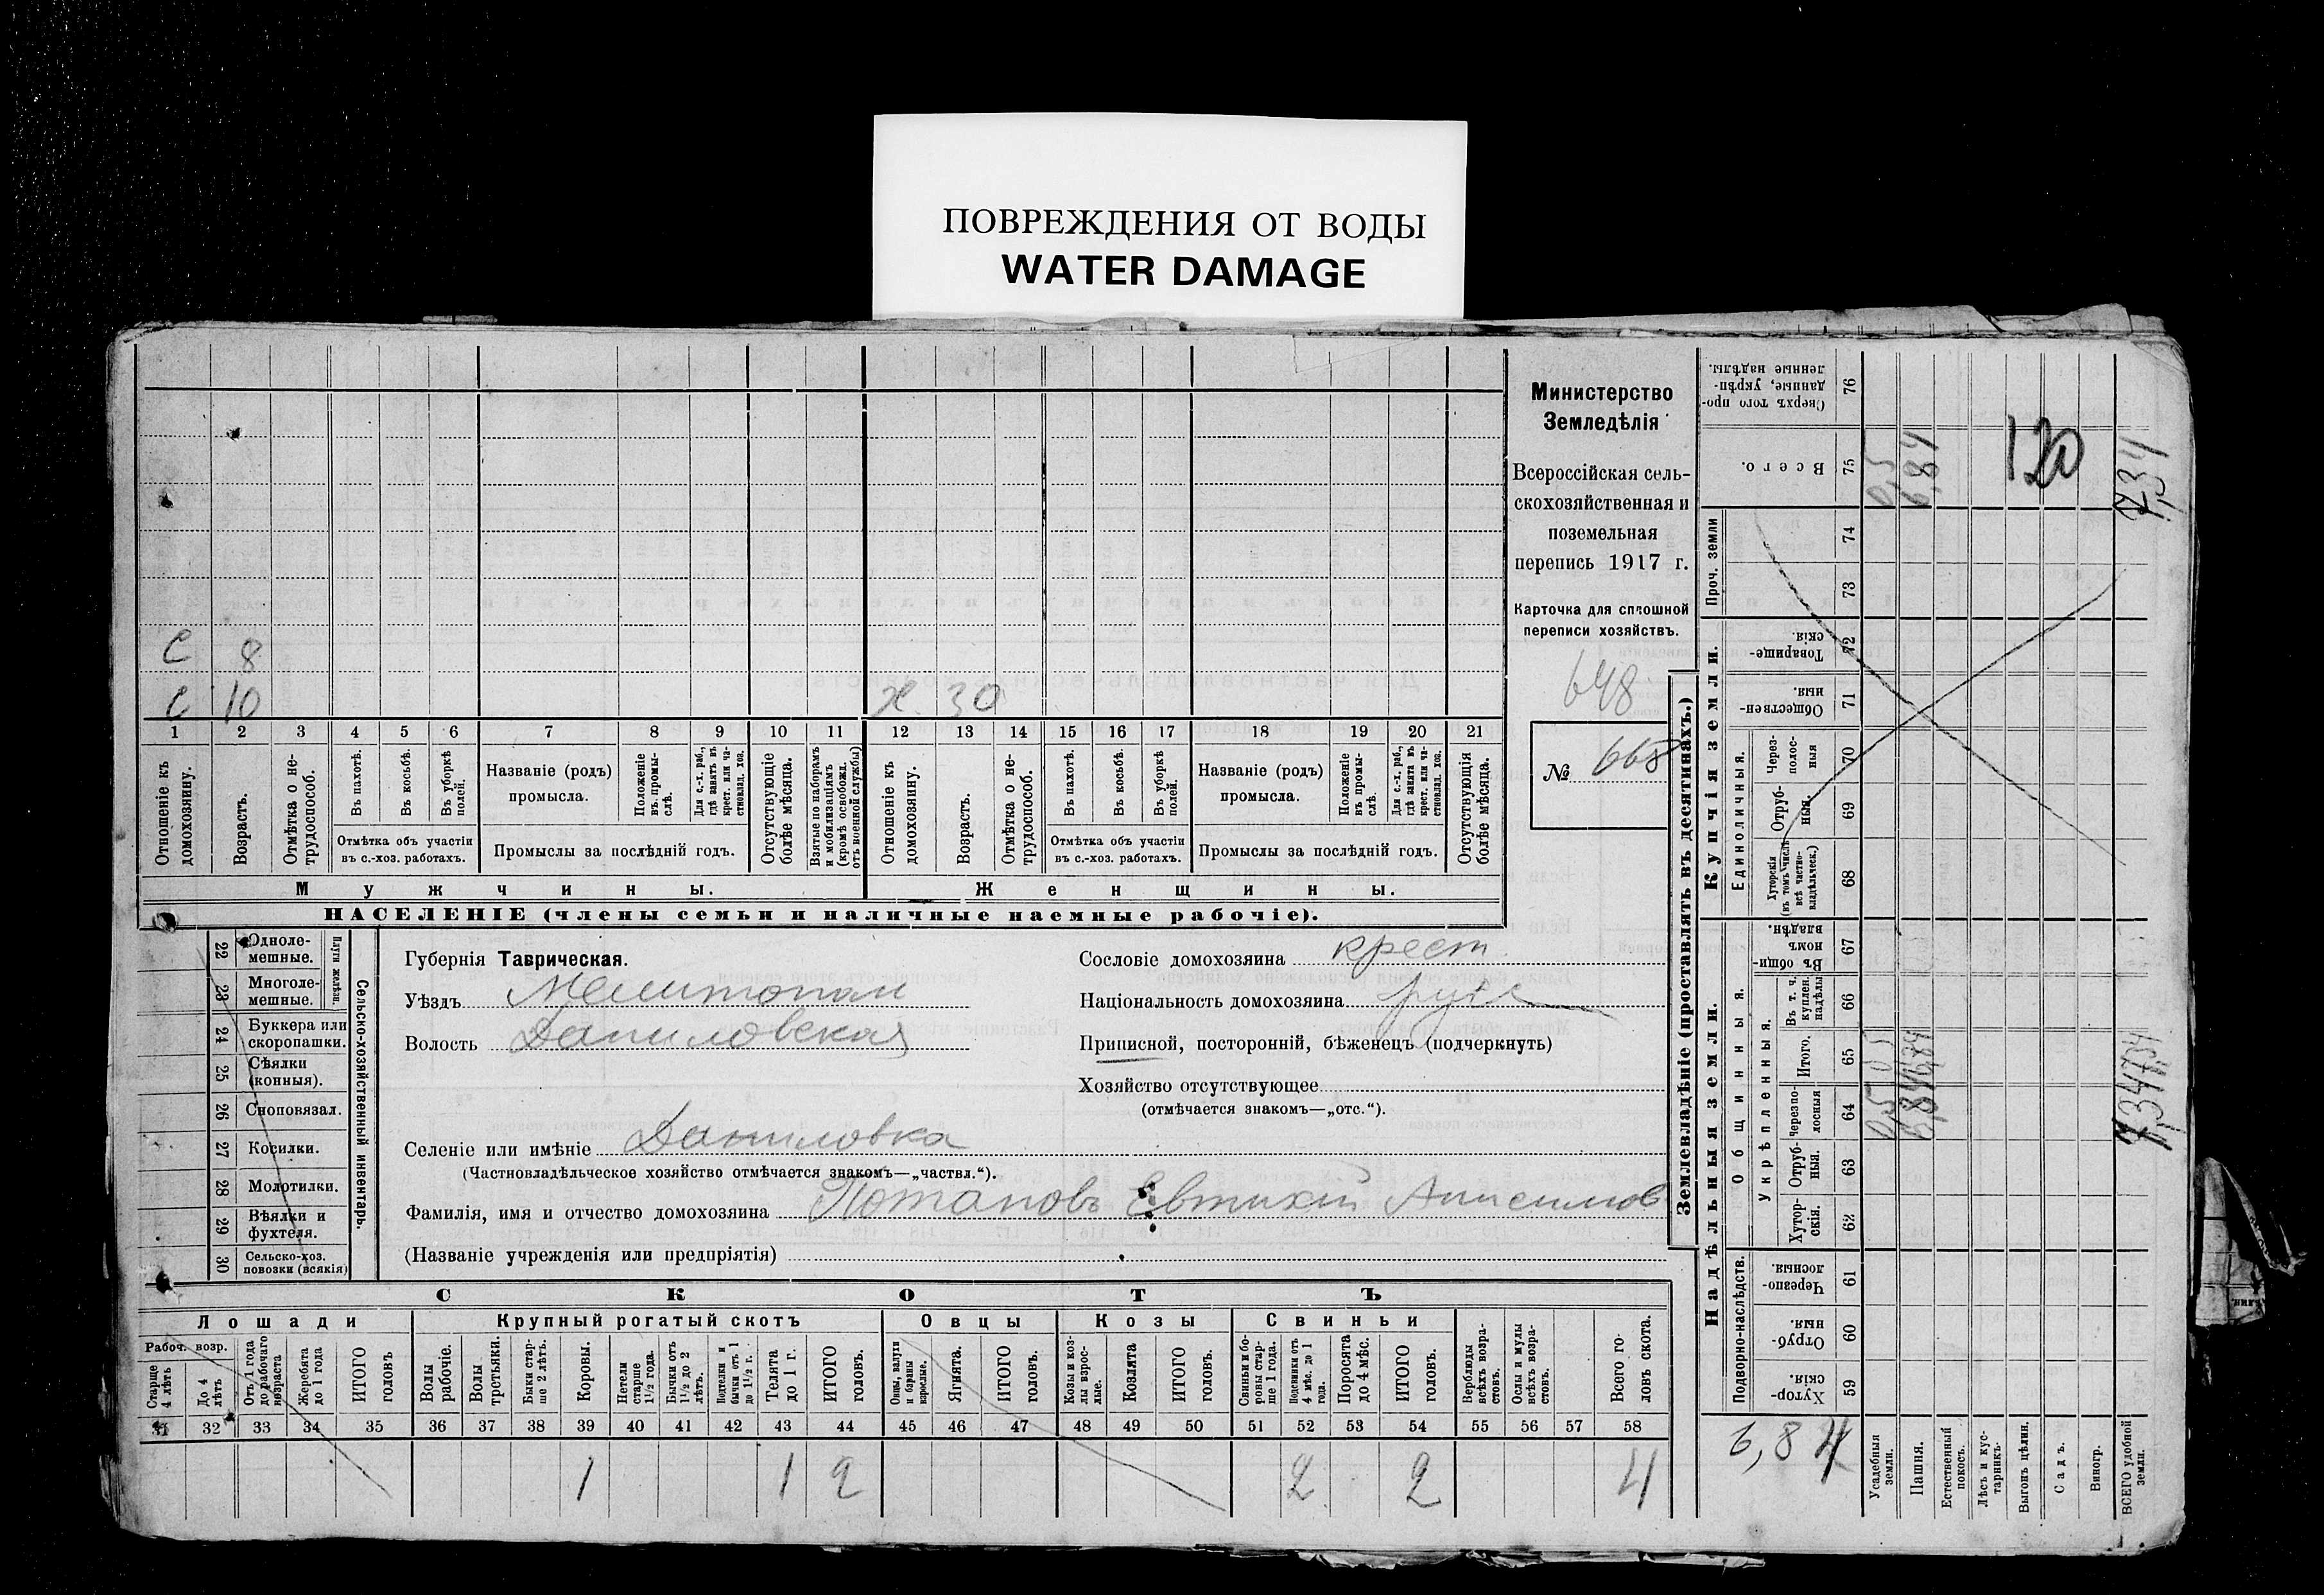 ПОВРЕЖДЕНИЯ ОТ ВОДЫ
WATER DAMAGE
С 8
С 10
Ж. 30
1 2 3 4 5 6 7 8 9 10 11 12 13 14 15 16 17 18 19 20 21
Отношеніе къ домохозяину.
Возрастъ.
Отмѣтка о нетрудоспособ.
Въ пахотѣ.
Въ косьбѣ.
Въ уборкѣ полей.
Отмѣтка объ участіи
въ с.-хоз. работахъ.
Названіе (родъ)
промысла.
Положеніе въ промыслѣ.
Для с.-х. раб., гдѣ занятъ въ крест. или частновлад. хоз.
Промыслы за послѣдній годъ.
Отсутствующіе болѣе мѣсяца.
Взятые по наборамъ и мобилизаціямъ (кромѣ освобожд. отъ военной службы)
Отношеніе къ домохозяину.
Возрастъ.
Отмѣтка о нетрудоспособ.
Въ пахотѣ.
Въ косьбѣ.
Въ уборкѣ полей.
Отмѣтка объ участіи
въ с.-хоз. работахъ.
Названіе (родъ)
промысла.
Положеніе въ промыслѣ.
Для с.-х. раб., гдѣ занята въ крест. или частновлад. хоз.
Промыслы за послѣдній годъ.
Отсутствующія болѣе мѣсяца.
Мужчины.
Женщины.
НАСЕЛЕНІЕ (члены семьи и наличные наемные рабочіе).
Министерство
Земледѣлія
Всероссійская сель-
скохозяйственная и
поземельная
перепись 1917 г.
Карточка для сплошной
переписи хозяйствъ.
648
№ 668
22 Одноле-
мешные.
23 Многоле-
мешные.
Плуги желѣзн.
24 Буккера или
скоропашки.
25 Сѣялки
(конныя).
26 Сноповязал.
27 Косилки.
28 Молотилки.
29 Вѣялки и
фухтеля.
30 Сельско-хоз.
повозки (всякія)
Сельско-хозяйственный инвентарь.
Губернія Таврическая.
Уѣздъ Мелитопол
Волость Даниловская
Сословіе домохозяина крест.
Національность домохозяина русс
Приписной, посторонній, бѣженецъ (подчеркнуть)
Хозяйство отсутствующее
(отмѣчается знакомъ—„отс.“).
Селеніе или имѣніе Даниловка
(Частновладѣльческое хозяйство отмѣчается знакомъ—„частвл.“).
Фамилія, имя и отчество домохозяина Потаповъ Евтихій Анисимов
(Названіе учрежденія или предпріятія)
СКОТЪ
Лошади
Крупный рогатый скотъ
Овцы
Козы
Свиньи
Рабоч. возр.
Старше 4 лѣтъ
До 4 лѣтъ
Отъ 1 года до рабочаго возраста
Жеребята до 1 года
ИТОГО головъ
Волы рабочіе.
Волы третьяки.
Быки старше 2 лѣтъ.
Коровы.
Нетели старше 1½ года.
Бычки отъ 1½ до 2 лѣтъ.
Подтелки и бычки отъ 1 до 1½ г.
Телята до 1 г.
ИТОГО головъ.
Овцы, валухи и бараны взрослые.
Ягнята.
ИТОГО головъ.
Козы и козлы взрослые.
Козлята
ИТОГО головъ.
Свиньи и боровы старше 1 года.
Подсвинки отъ 4 мѣс. до 1 года.
Поросята до 4 мѣс.
ИТОГО головъ.
Верблюды всѣхъ возрастовъ.
Ослы и мулы всѣхъ возрастовъ.
Всего головъ скота.
31 32 33 34 35 36 37 38 39 40 41 42 43 44 45 46 47 48 49 50 51 52 53 54 55 56 57 58
1 1 2 2 2 4
Землевладѣніе (проставлять въ десятинахъ.)
Надѣльныя земли.
Купчія земли.
Проч. земли
Подворно-наслѣдств.
Общинныя.
Укрѣпленныя.
Единоличныя.
Сверхъ того проданные, укрѣпленные надѣлы. 76
Всего. 75
74
73
Товарищескія. 72
Общественныя. 71
Черезполосныя 70
Отрубныя. 69
Хуторскія (въ томъ числѣ всѣ частновладѣльческ.) 68
Въ общинномъ владѣн. 67
Въ т. ч. куплен. надѣлы 66
Итого. 65
Черезполосныя 64
Отрубныя. 63
Хуторскія. 62
Черезполосныя. 61
Отрубныя. 60
Хуторскія. 59
0,5
6,84
120
7,34
0,5 0,5
6,84 6,84
7,34 7,34
6,84
Усадебныя земли.
Пашня.
Естественный покосъ.
Лѣсъ и кустарникъ.
Выгонъ цѣлин.
Садъ.
Виногр.
ВСЕГО удобной земли.